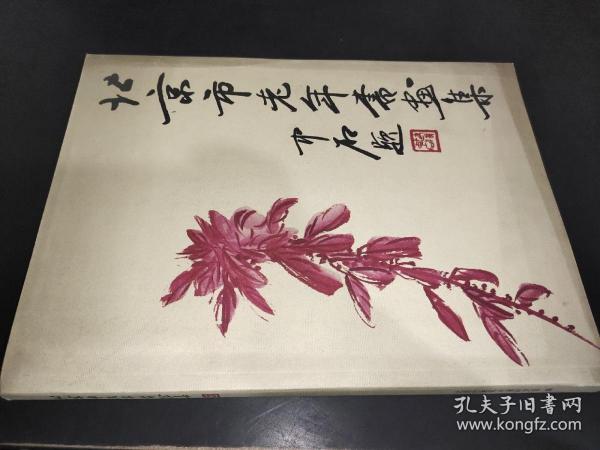 北京市老年书画集
中石题
孔夫子旧书网
www.kongfz.com